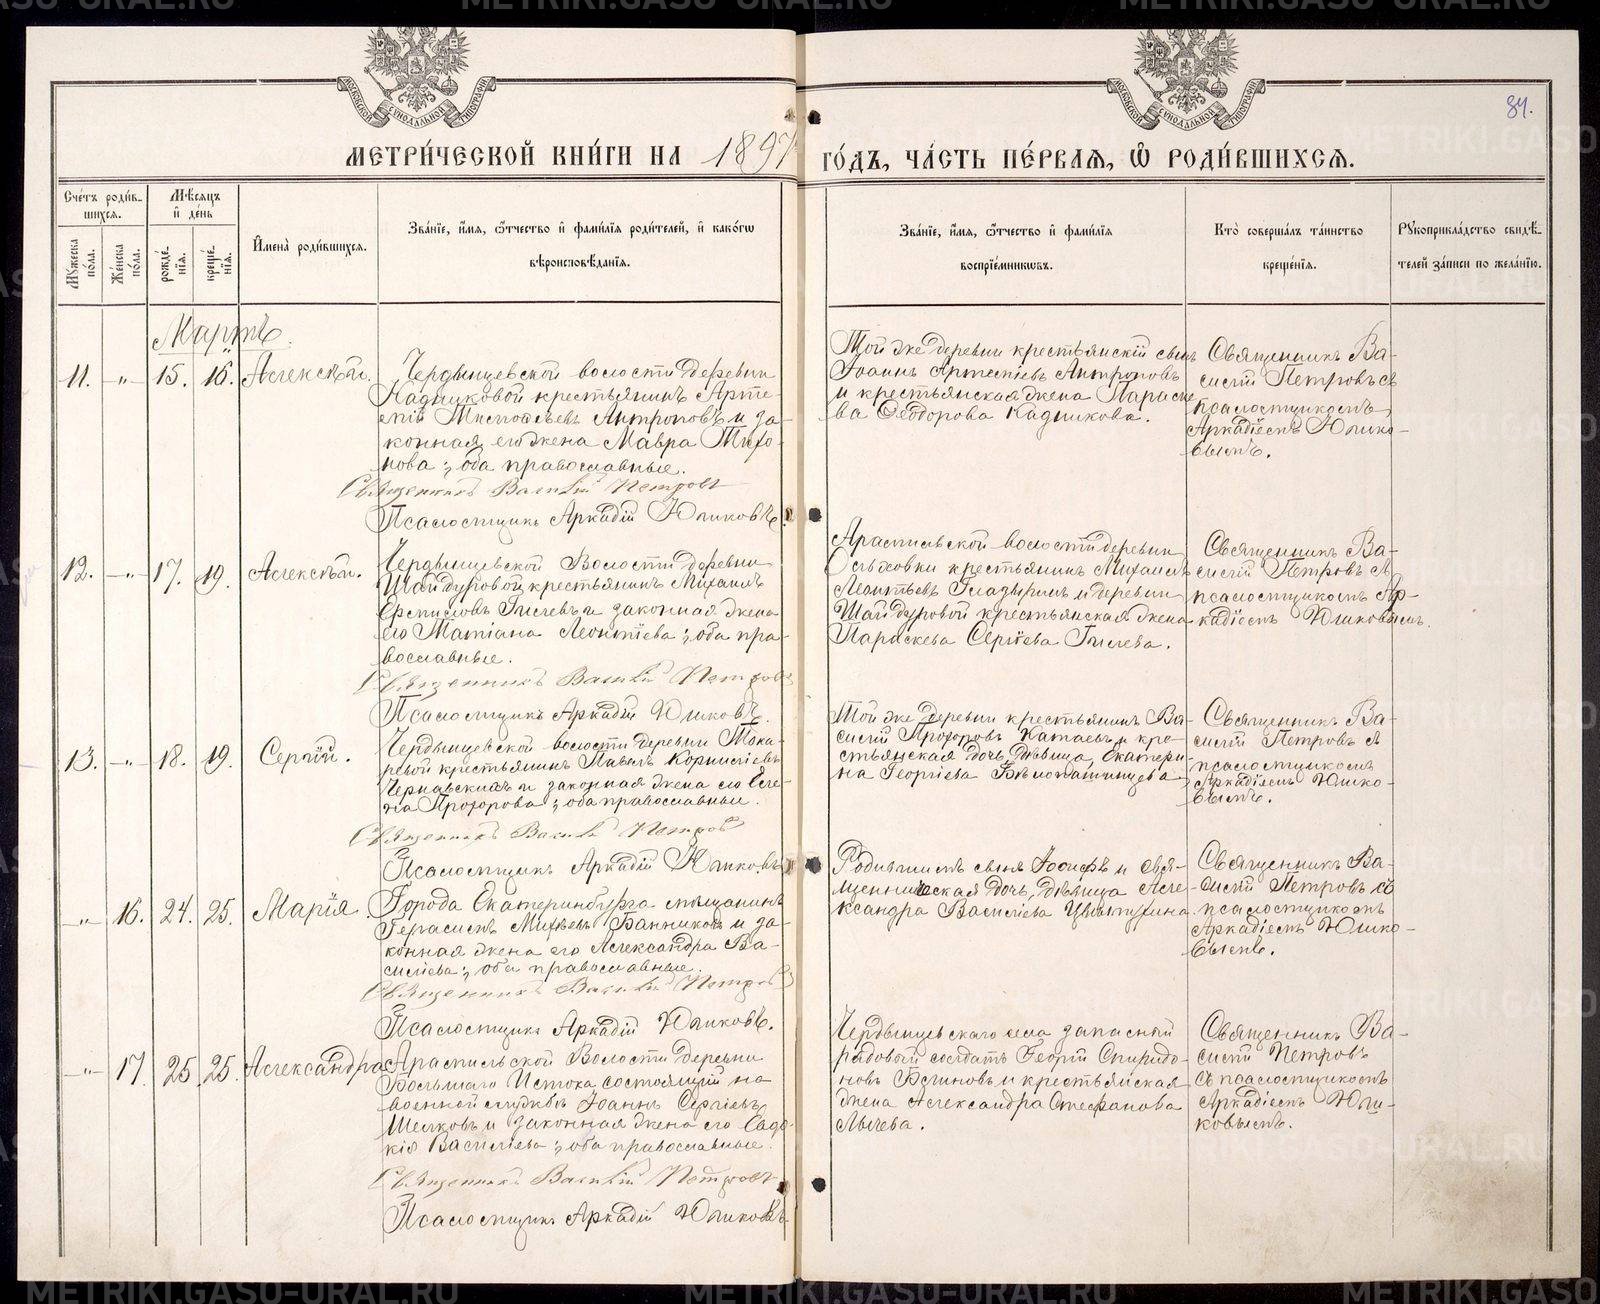 84.
МЕТРИ́ЧЕСКОЙ КНИ́ГИ НА 1897 ГО́ДЪ, ЧА́СТЬ ПЕ́РВАЯ, Ѽ РОДИ́ВШИХСЯ.
Сче́тъ роди́в-
шихся.
Мѣ́сяцъ
и҆ де́нь
Му́жеска
по́ла.
Же́нска
по́ла.
рожде́-
нїя.
креще́-
нїя.
И҆мена̀ роди́вшихся.
Зва́нїе, и҆́мя, ѻ҆́тчество и҆ фами́лїя роди́телей, и҆ како́гѡ
вѣроисповѣ́данїя.
Зва́нїе, и҆́мя, ѻ҆́тчество и҆ фами́лїя
воспрїе́мникѡвъ.
Кто̀ соверша́лъ та́инство
креще́нїя.
Рукоприкла́дство свидѣ́-
телей за́писи по жела́нїю.
Мартъ.
11. -„- 15. 16. Алексѣй.
Чердынцевской волости деревни
Кадниковой крестьянинъ Арте-
мій Тимофѣевъ Антроповъ и за-
конная его жена Мавра Тихо-
нова; оба православные.
Священникъ Василій Петровъ
Псаломщикъ Аркадій Юшковъ.
Той же деревни крестьянскій сынъ
Іоаннъ Артеміевъ Антроповъ
и крестьянская жена Параске-
ва Ѳеодорова Кадникова.
Священникъ Ва-
силій Петровъ съ
псаломщикомъ
Аркадіемъ Юшко-
вымъ.
12. -„- 17. 19. Алексѣй.
Чердынцевской Волости деревни
Шайдуровой крестьянинъ Михаилъ
Гилевъ и законная жена
его Татіана Леонтіева; оба пра-
вославные.
Священникъ Василій Петровъ
Псаломщикъ Аркадій Юшковъ.
Арамильской волости деревни
Ольховки крестьянинъ Михаилъ
Леонтьевъ Гладыринъ и деревни
Шайдуровой крестьянская жена
Параскева Сергіева Гилева.
Священникъ Ва-
силій Петровъ съ
псаломщикомъ Ар-
кадіемъ Юшковымъ.
13. -„- 18. 19. Сергій.
Чердынцевской волости деревни Тока-
ревой крестьянинъ Павелъ Корниліевъ
Чернавскихъ и законная жена его Еле-
на Прохорова; оба православные.
Священникъ Василій Петровъ
Псаломщикъ Аркадій Юшковъ
Той же деревни крестьянинъ Ва-
силій Прохоровъ Катаевъ и кре-
стьянская дочь, дѣвица, Екатери-
на Георгіева Бѣлопашинцева
Священникъ Ва-
силій Петровъ съ
псаломщикомъ
Аркадіемъ Юшко-
вымъ.
-„- 16. 24. 25. Марія.
Города Екатеринбурга мѣщанинъ
Герасимъ Банниковъ и за-
конная жена его Александра Ва-
силіева; оба православные.
Священникъ Василій Петровъ
Псаломщикъ Аркадій Юшковъ.
Родившимъ сынъ Іосифъ и свя-
щенническая дочь, дѣвица Але-
ксандра Василіева
Священникъ Ва-
силій Петровъ съ
псаломщикомъ
Аркадіемъ Юшко-
вымъ.
-„- 17. 25 25. Александра
Арамильской Волости деревни
Большаго Истока, состоящій на
военной службѣ Іоаннъ Сергіевъ
Шелковъ и законная жена его Евдо-
кія Василіева; оба православные.
Священникъ Василій Петровъ
Псаломщикъ Аркадій Юшковъ
Чердынцевскаго села запасный
рядовой солдатъ Георгій Спиридо-
новъ Блиновъ и крестьянская
жена Александра Стефанова
Лычева.
Священникъ Ва-
силій Петровъ
съ псаломщикомъ
Аркадіемъ Юш-
ковымъ.
METRIKI.GASO-URAL.RU